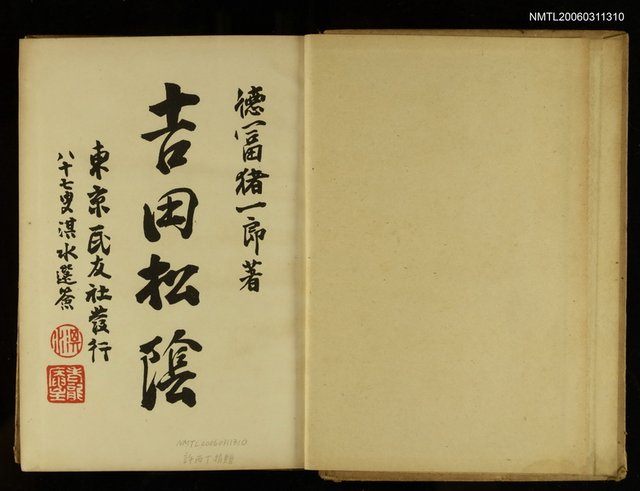 NMTL20060311310
德富猪一郎著
吉田松陰
東京民友社發行
八十七叟淇水題簽
NMTL20060311310
許丙丁捐贈